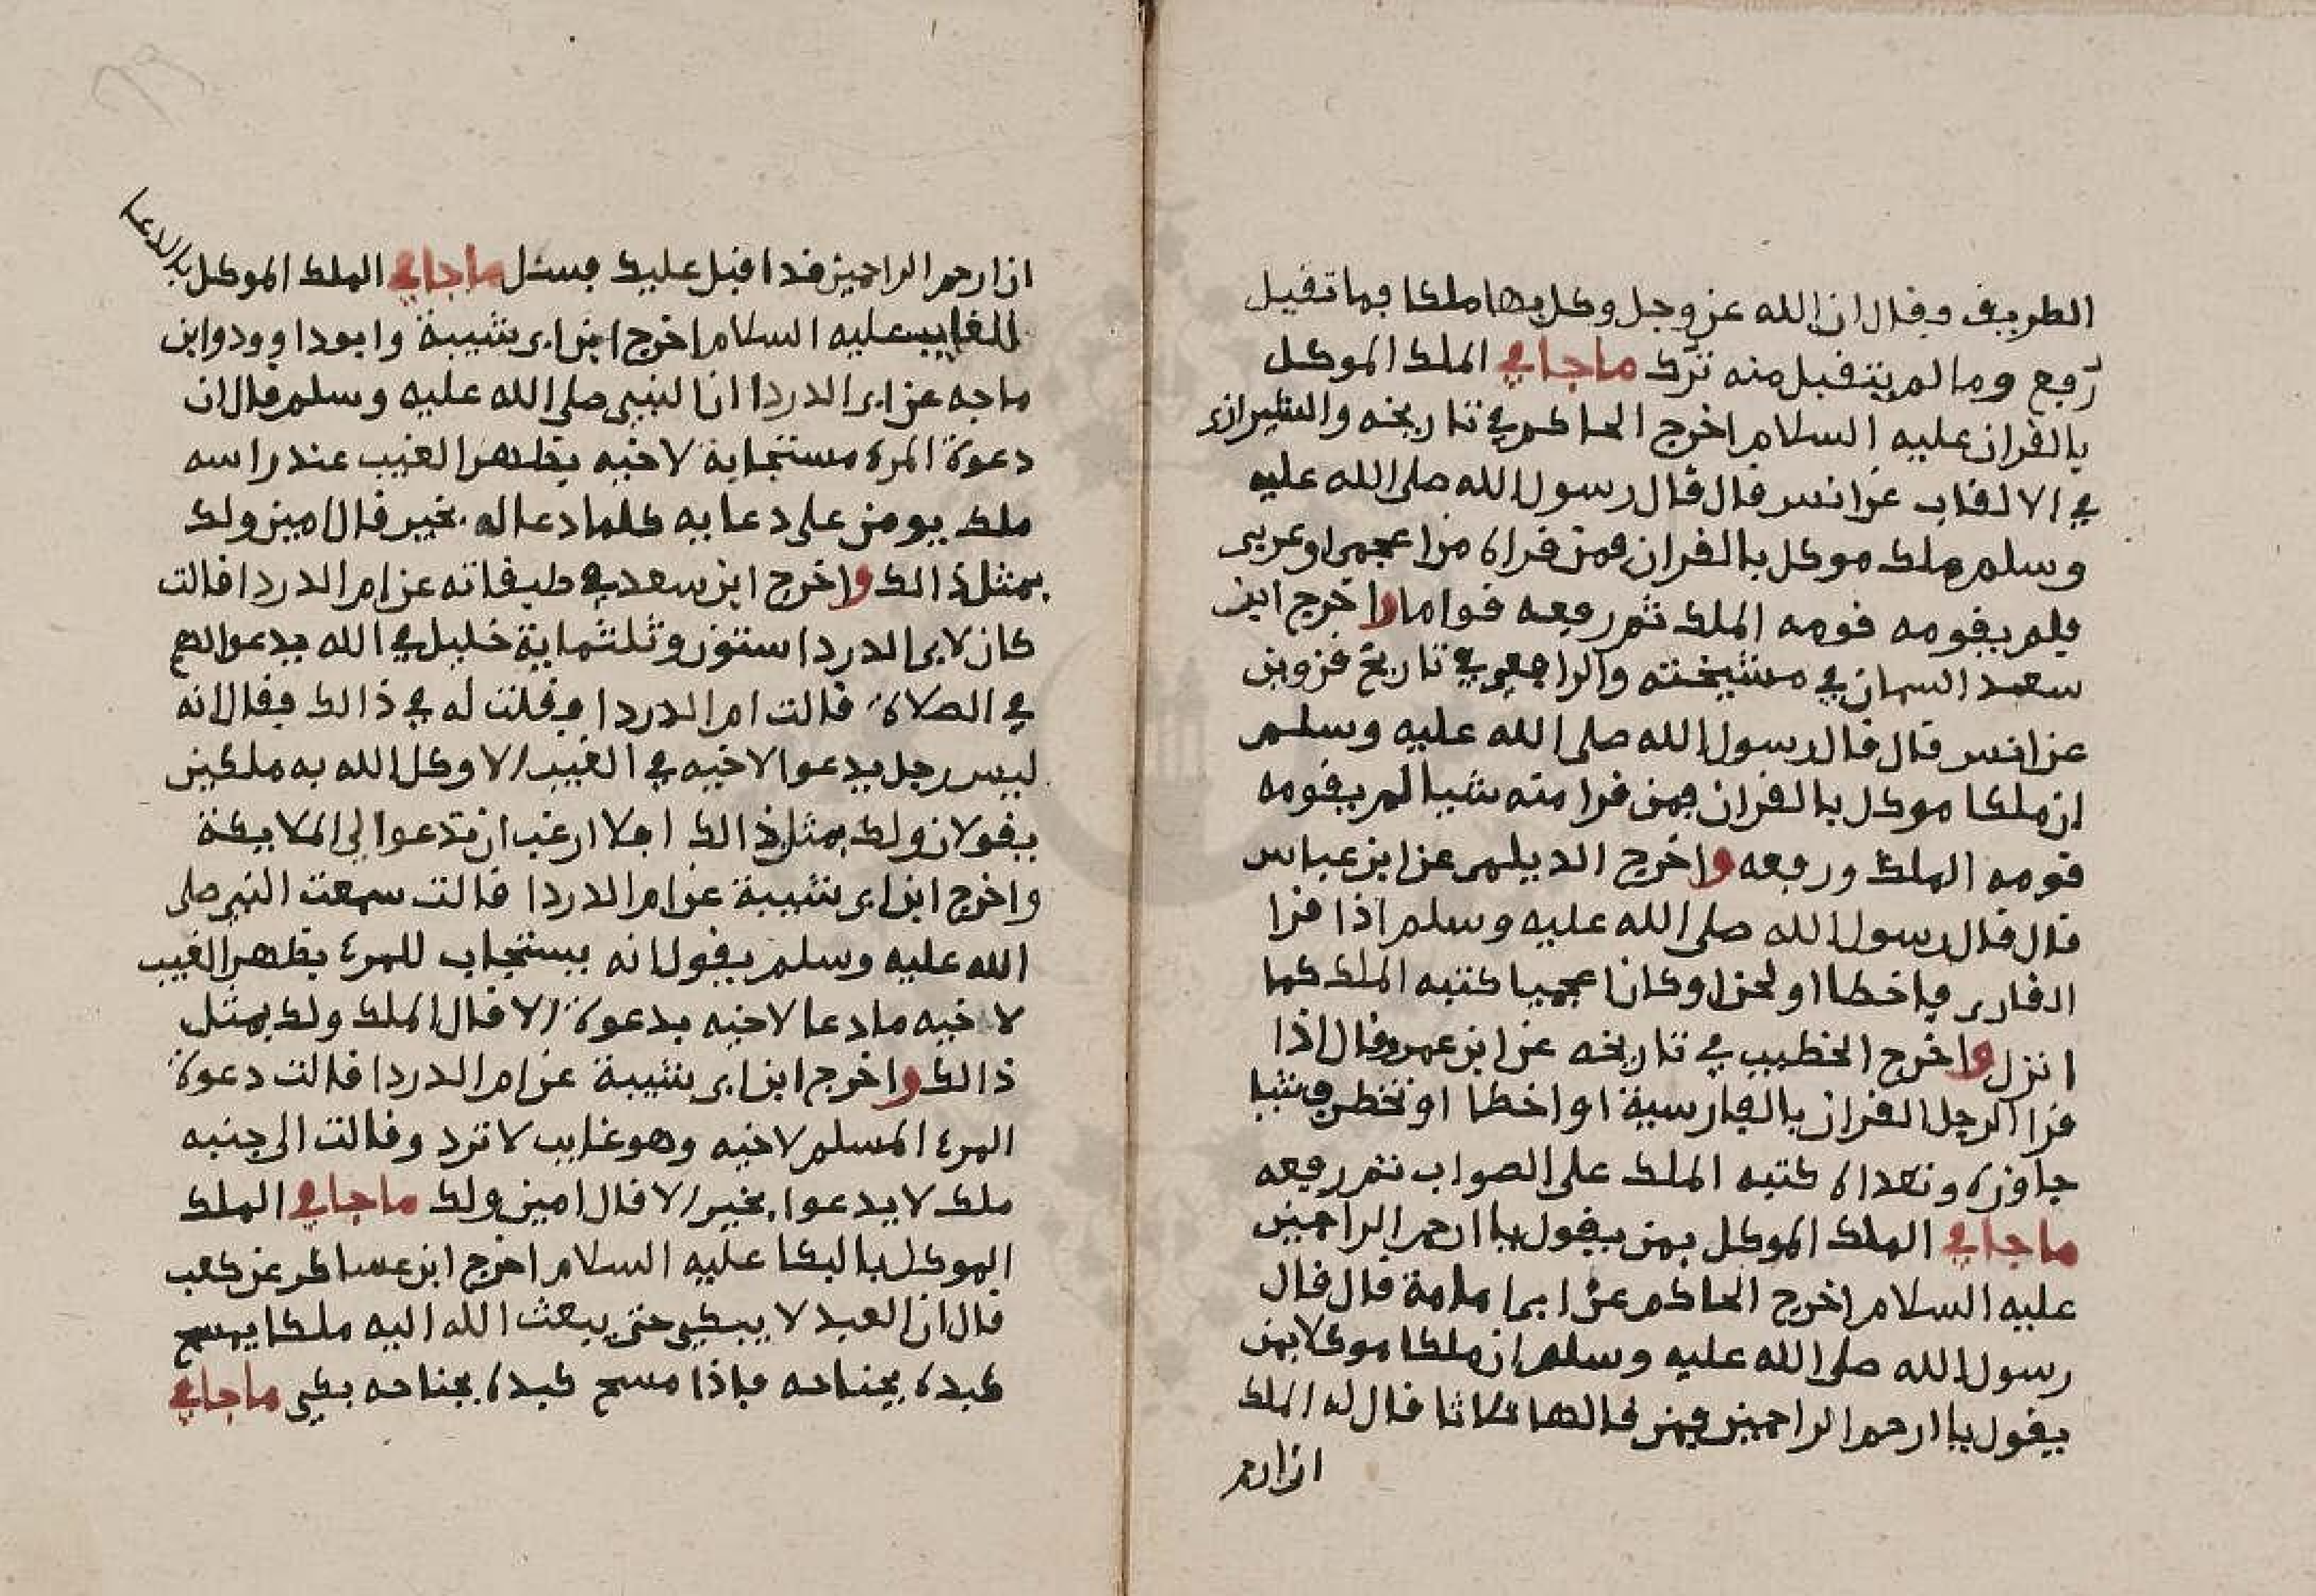 الطريق وقال ان الله عز وجل وكل بها ملكا فما تقبل
رفع وما لم يتقبل منه ترك ما جا في الملك الموكل
بالقران عليه السلام اخرج الحاكم في تاريخه والشيرازي
في الالقاب عن انس قال قال رسول الله صلى الله عليه
وسلم ملك موكل بالقران فمن قراه من اعجمى او عربى
فلم يقومه قومه الملك ثم رفعه قواما واخرج ابن
سعيد السمان في مشيخته والرافعي في تاريخ قزوين
عن انس قال قال رسول الله صلى الله عليه وسلم
ان ملكا موكل بالقران فمن قرا منه شيا لم يقومه
قومه الملك ورفعه واخرج الديلمى عن ابن عباس
قال قال رسول الله صلى الله عليه وسلم اذا قرا
القارى فاخطا او لحن او كان اعجميا كتبه الملك كما
انزل واخرج الخطيب في تاريخه عن ابن عمرو قال اذا
قرا الرجل القران بالفارسية او اخطا او
جاوزه وتعداه كتبه الملك على الصواب ثم رفعه
ما جا في الملك الموكل بمن يقول يا ارحم الراحمين
عليه السلام اخرج الحاكم عن ابى امامة قال قال
رسول الله صلى الله عليه وسلم ان ملكا موكلا بمن
يقول يا ارحم الراحمين فمن قالها ثلاثا قال له الملك
ان ارحم
ان ارحم الراحمين قد اقبل عليك فسئل ما جا في الملك الموكل بالدعا
للغايب عليه السلام اخرج ابن ابى شيبة وابو داوود وابن
ماجه عن ابى الدردا ان النبى صلى الله عليه وسلم قال ان
دعوة المرء مستجابة لاخيه بظهر الغيب عند راسه
ملك يومن على دعايه كلما دعا له بخير قال امين ولك
بمثل ذالك واخرج ابن سعد في طبقاته عن ام الدردا قالت
كان لابى الدردا ستون وثلثماية خليل في الله يدعوا لهم
في الصلاة قالت ام الدردا فقلت له في ذالك فقال انه
ليس رجل يدعوا لاخيه في الغيب الا وكل الله به ملكين
يقولان ولك بمثل ذالك افلا ارغب ان تدعوا لى الملايكة
واخرج ابن ابى شيبة عن ام الدردا قالت سمعت النبى صلى
الله عليه وسلم يقول انه يستجاب للمرء بظهر الغيب
لاخيه ما دعا لاخيه بدعوة الا قال الملك ولك بمثل
ذالك واخرج ابن ابى شيبة عن ام الدردا قالت دعوة
المرء المسلم لاخيه وهو غايب لا ترد وقالت الى جنبه
ملك لا يدعوا بخير الا قال امين ولك ما جا في الملك
الموكل بالبكا عليه السلام اخرج ابن عساكر عن كعب
قال ان العبد لا يبكى حتى يبعث الله اليه ملكا يمسح
كبده بجناحه فاذا مسح كبده بجناحه بكى ما جا في